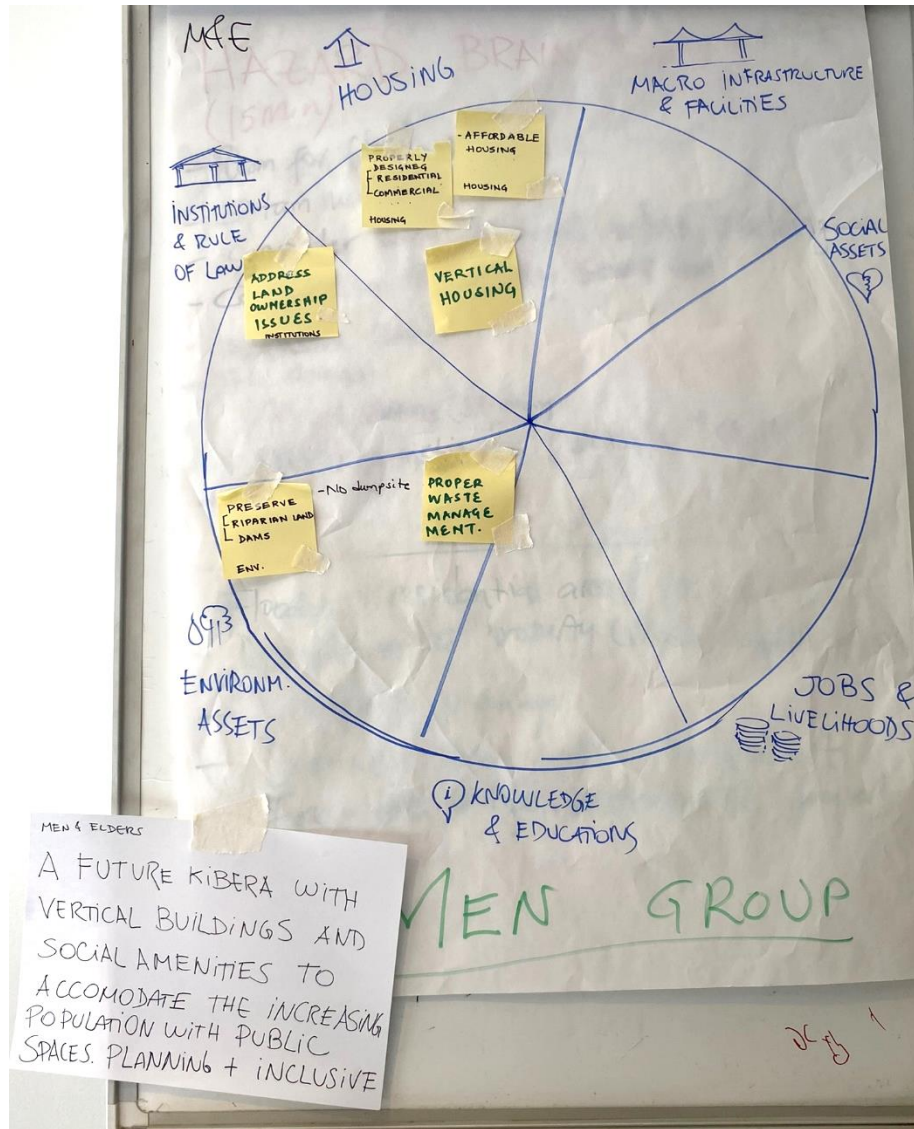 M&E
HOUSING
MACRO INFRASTRUCTURE
& FACILITIES
INSTITUTIONS
& RULE
OF LAW
SOCIAL
ASSETS
PROPERLY
DESIGNEG
RESIDENTIAL
COMMERCIAL
HOUSING
- AFFORDABLE
HOUSING
HOUSING
ADDRESS
LAND
OWNERSHIP
ISSUES.
INSTITUTIONS
VERTICAL
HOUSING
PRESERVE
RIPARIAN LAND
DAMS
ENV.
- No dumpsite
PROPER
WASTE
MANAGE
MENT.
ENVIRONM.
ASSETS
JOBS &
LIVELIHOODS
i KNOWLEDGE
& EDUCATIONS
MEN GROUP
MEN & ELDERS
A FUTURE KIBERA WITH
VERTICAL BUILDINGS AND
SOCIAL AMENITIES TO
ACCOMODATE THE INCREASING
POPULATION WITH PUBLIC
SPACES. PLANNING + INCLUSIVE
HAZARD BRAIN
(15min)